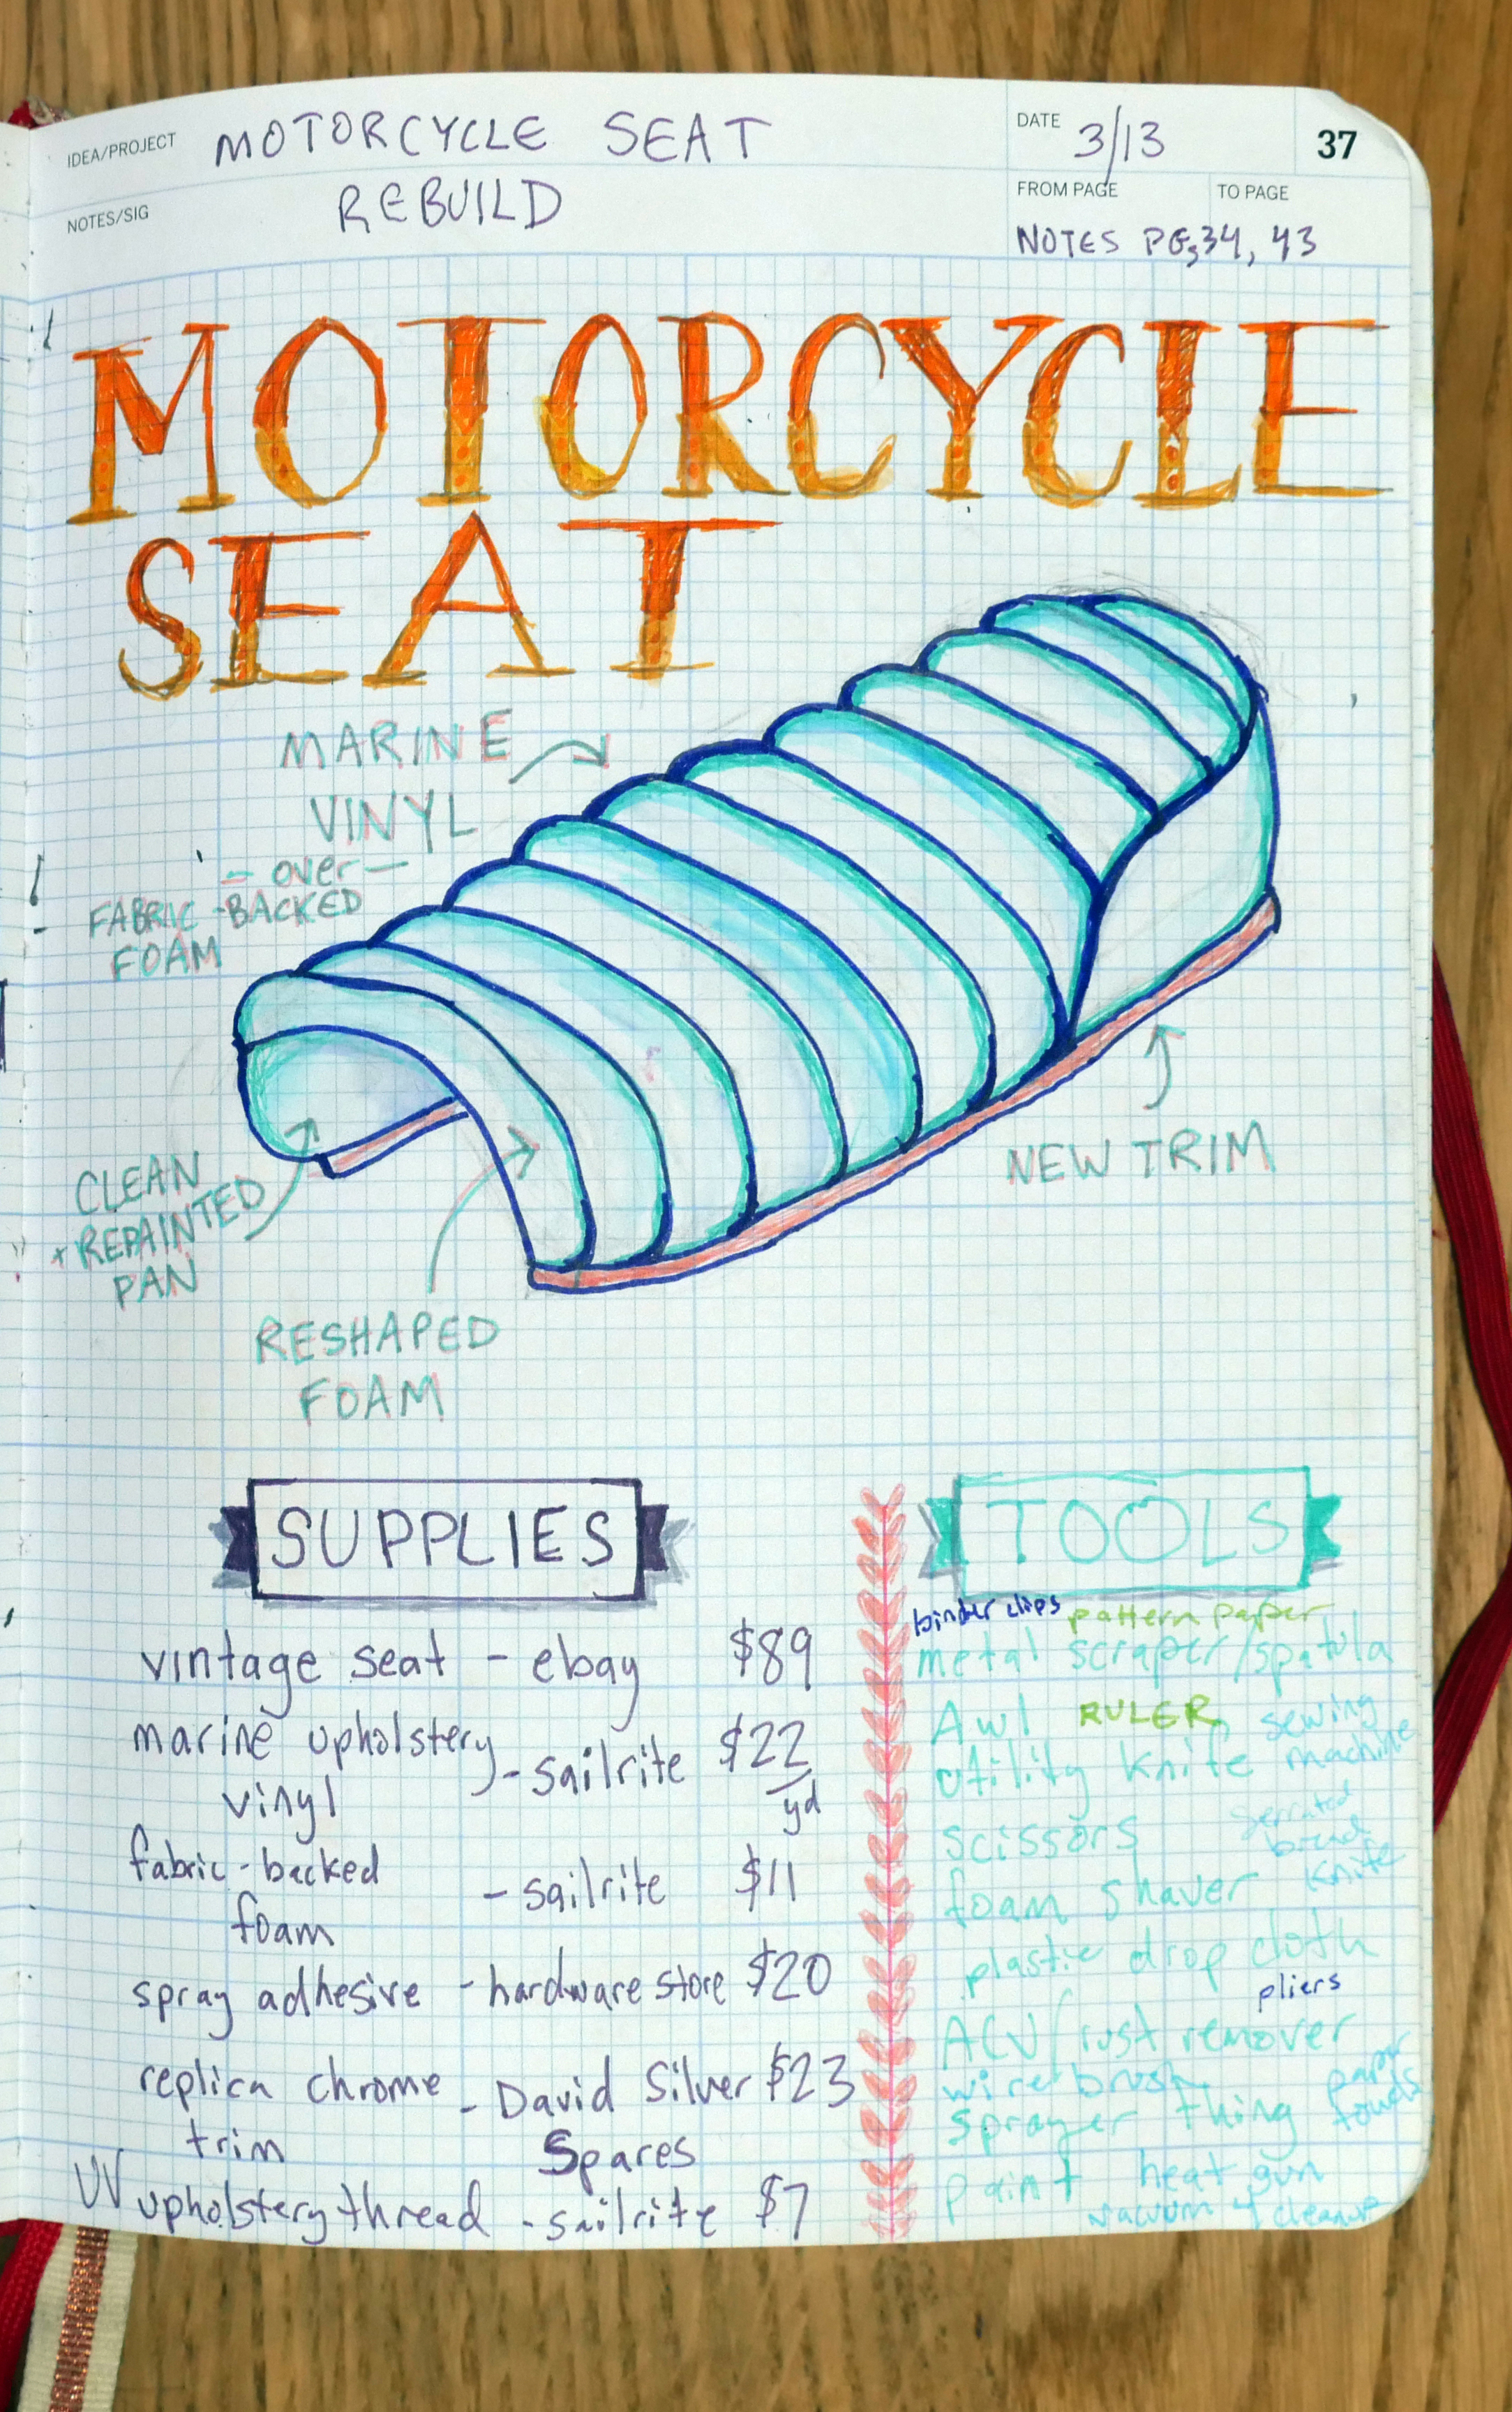 IDEA/PROJECT MOTORCYCLE SEAT
NOTES/SIG REBUILD
DATE 3/13
37
FROM PAGE TO PAGE
NOTES PGS 34, 43
MOTORCYCLE
SEAT
MARINE
VINYL
- over -
FABRIC-BACKED
FOAM
CLEAN
+ REPAINTED
PAN
RESHAPED
FOAM
NEW TRIM
SUPPLIES
vintage seat - ebay $89
marine upholstery
vinyl - sailrite $22
yd
fabric-backed
foam - sailrite $11
spray adhesive - hardware store $20
replica chrome
trim - David Silver $23
Spares
UV upholstery thread - sailrite $7
TOOLS
binder clips pattern paper
metal scraper/spatula
Awl RULER sewing
utility knife machine
scissors serrated
bread
foam shaver knife
plastic drop cloth
pliers
ACV/rust remover
wire brush paper
sprayer thing towels
paint heat gun
vacuum 4 cleanup